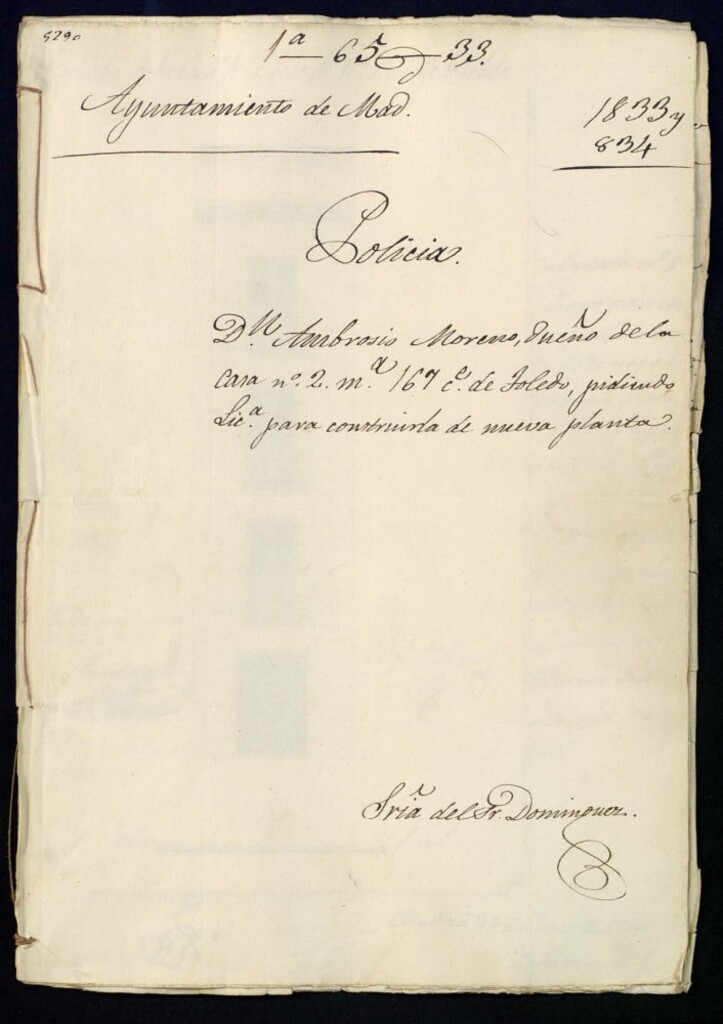 5290
1ª — 65 — 33.
Ayuntamiento de Mad.
1833 y
834
Policia.
D.ⁿ Ambrosio Moreno, dueño de la
casa nº. 2. m.ª 167 c.e de Toledo, pidiendo
Lic.ª para construirla de nueva planta.
Sria del Sr. Dominguez.